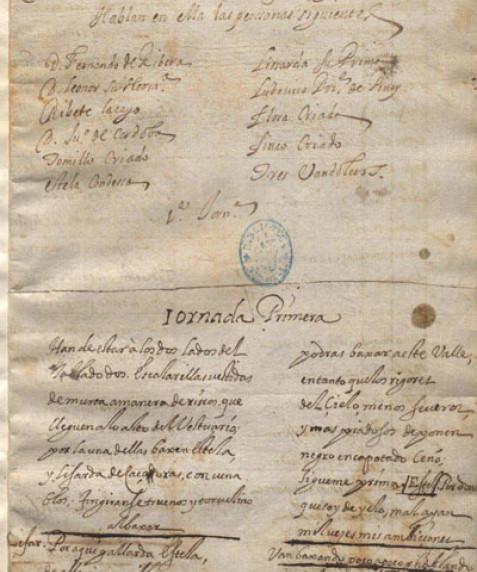 Hablan en ella las personas siguientes
D. Fernando de Ribera
D. Leonor su Herm.ª
Ribete lacayo
D. Ju.º de Cordoba
Tomillo Criado
Estela Condessa
Lisarda su Prima
Ludovico Prin.e de Pinoy
Flora Criada
Tineo Criado
Tres Vandoleros.
1.ª Jorn.ª
Jornada Primera
Han de estar à los dos lados del
tablado dos escalerillas vestidas
de murta a manera de riscos, que
lleguen a lo alto del Vestuario,
por la una dellas baxen Estela,
y Lisarda de caçadoras, con vena
blos, fingiranse truenos y torvelino
al baxar
Lisar. Por aqui gallarda Estela,
podras baxar a este Valle,
en tanto que los rigores
del Cielo, menos severos,
y mas piadosos deponen
negro encapotado Ceño;
sigueme prima, Estel. Por donde
que soy de yelo, mal ayan
mil vezes mis ambiciones
Van baxando poco a poco hablando